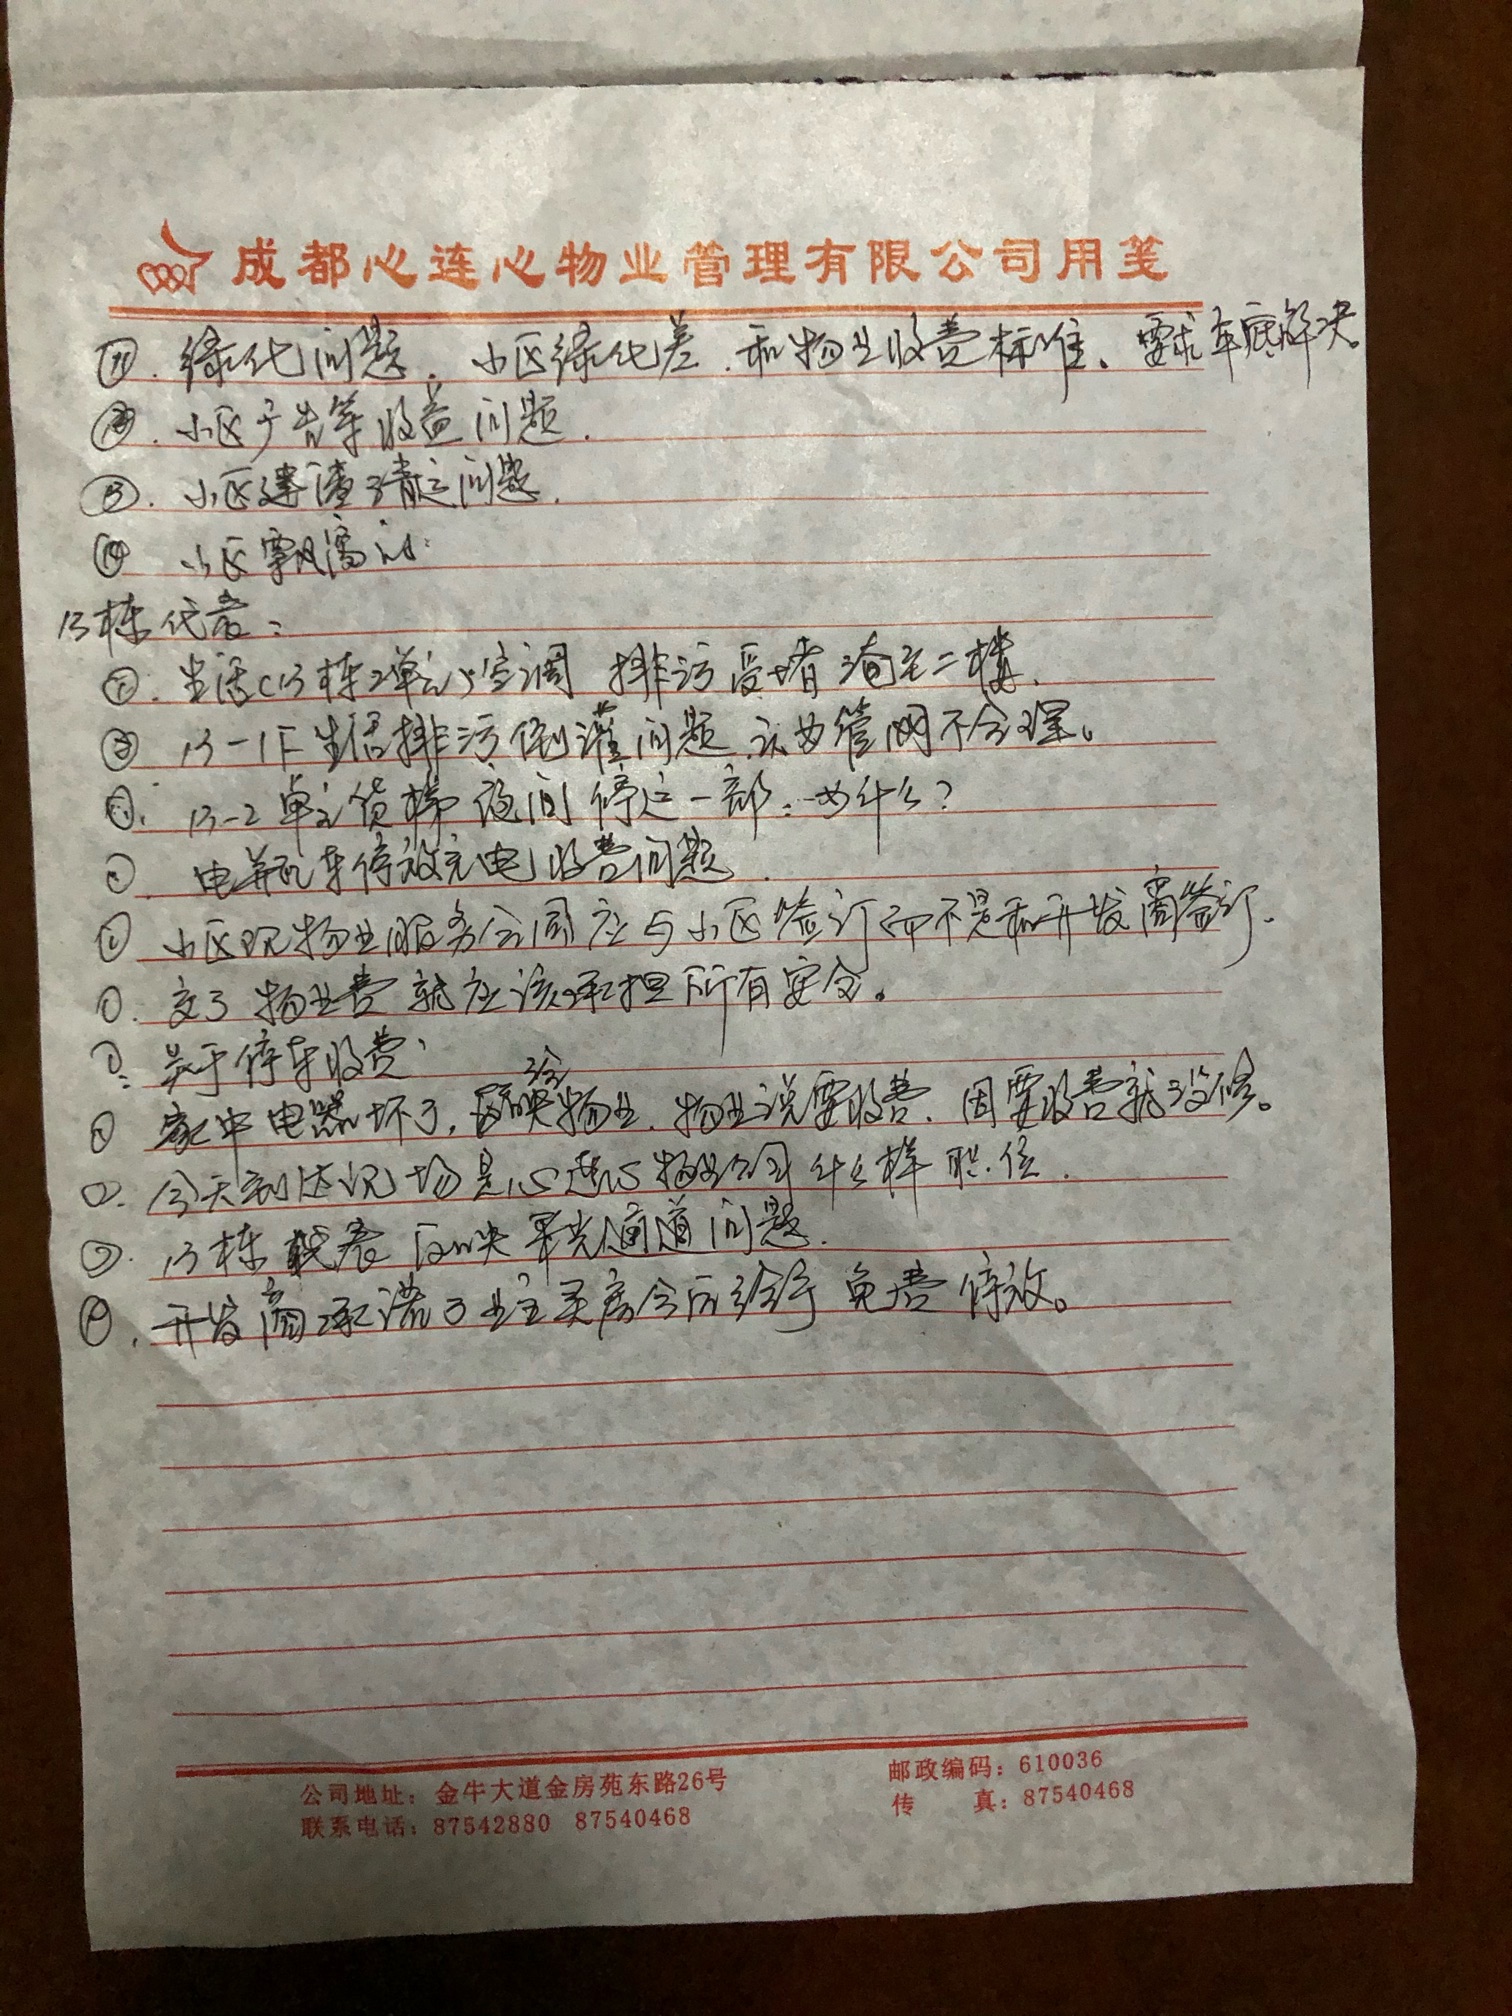 成都心连心物业管理有限公司用笺
⑪. 绿化问题. 小区绿化差. 和物业收费标准、要求年底解决。
⑫. 小区广告等收益问题.
⑬. 小区建渣清运问题.
⑭ 小区飘窗
13栋代表:
生活(13栋2单元)空调 排污受堵 淹至二楼.
13-1F生活排污倒灌问题.认为管网不合理。
13-2单元货梯夜间停运一部:为什么?
电瓶车停放充电收费问题.
小区现物业服务合同应与小区签订而不是和开发商签订.
交了物业费就应该承担所有安全。
关于停车收费
家中电器坏了,反映给物业.物业说要收费.因要收费就没修。
今天到达现场是心连心物业公司什么样职位.
13栋代表反映采光通道问题.
开发商承诺了业主买房今后给予免费停放。
公司地址:金牛大道金房苑东路26号 邮政编码:610036
联系电话:87542880 87540468 传 真:87540468